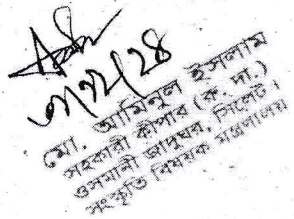 ৩/১২/২৪
মো. আমিনুল ইসলাম
সহকারী কীপার (ক. দা.)
ওসমানী জাদুঘর, সিলেট।
সংস্কৃতি বিষয়ক মন্ত্রণালয়